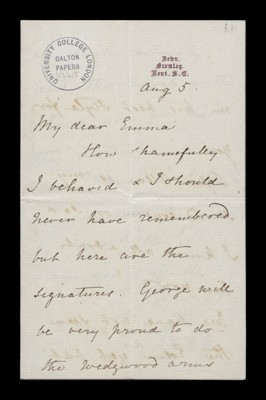 UNIVERSITY COLLEGE LONDON
GALTON
PAPERS
Down,
Bromley,
Kent. S.E.
Aug 5.
My dear Emma
How shamefully
I behaved & I should
never have remembered
but here are the
signatures. George will
be very proud to do
the Wedgwood arms